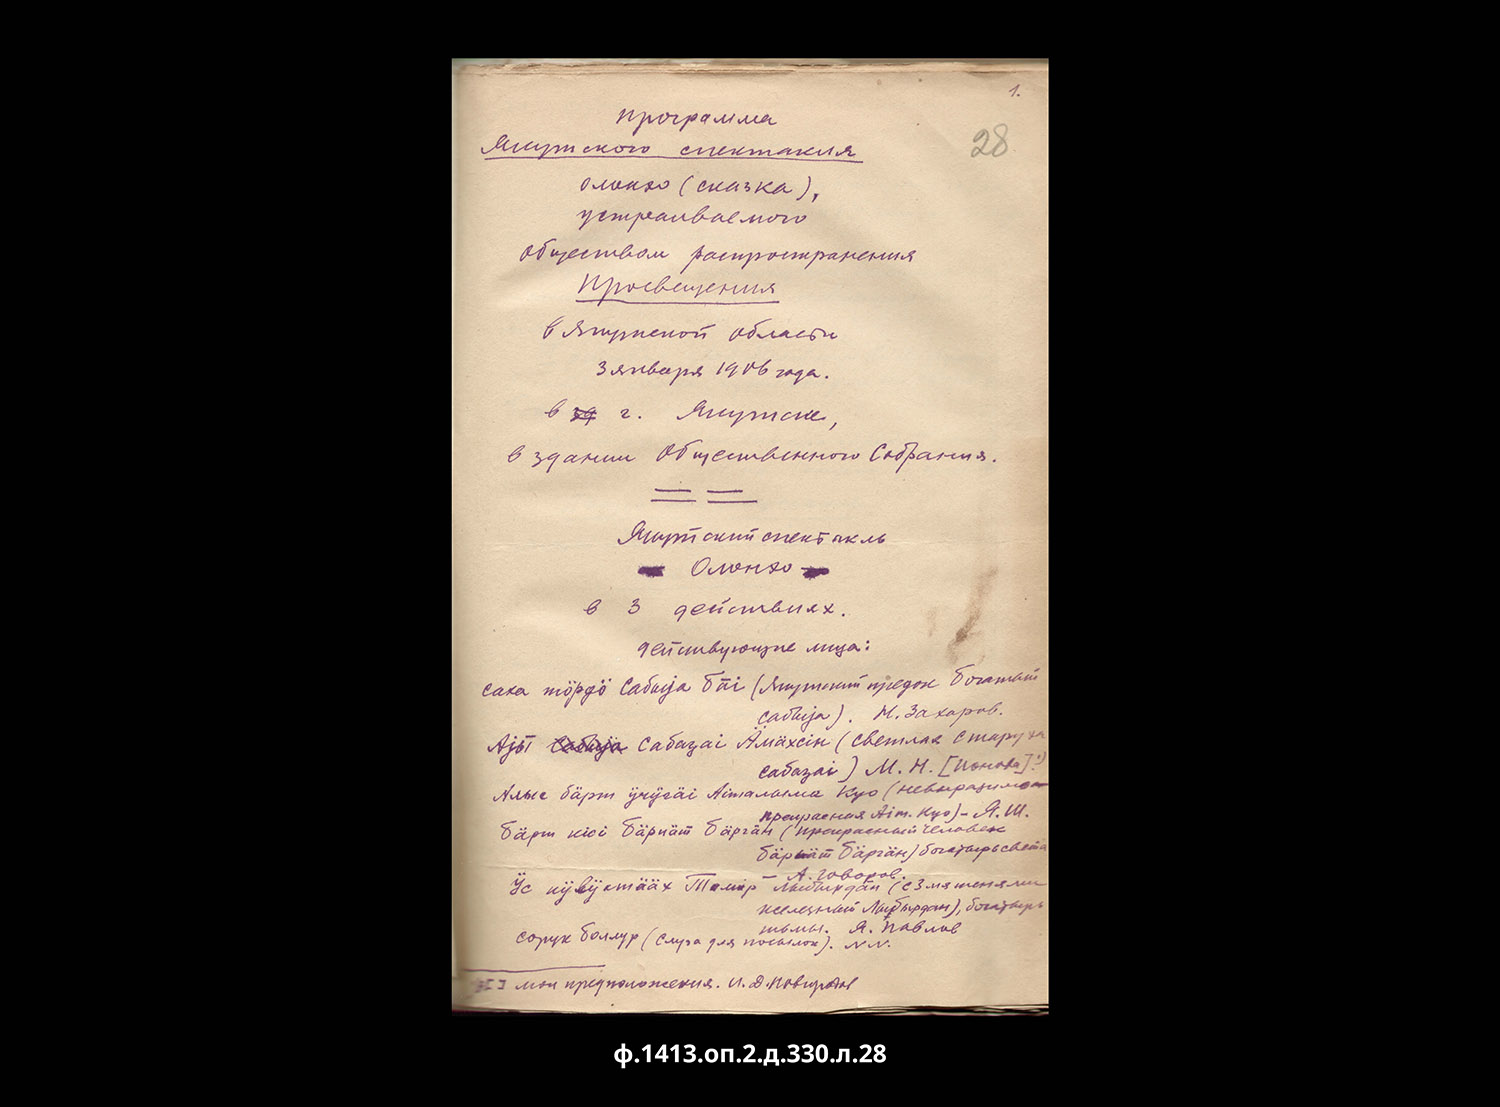 1.
28
Программа
Якутского спектакля
олонхо (сказка),
устраиваемого
обществом распространения
Просвещения
в Якутской области
3 января 1906 года.
в г. Якутске,
в здании Общественного Собрания.
Якутский спектакль
Олонхо
в 3 действиях.
действующие лица:
саха тöрдö Сабыjа бāі (якутский предок богатый
сабыjа). Н. Захаров.
Аjы̄ сабаҕаі Äмäхсін (светлая старуха
сабаҕаі) М. Н. [Попова]
Алыс бäрт ӱчӱгäі Аіталыма Куо (невыразимо
прекрасная Аіт. Куо) – Я. Ш.
бäрт кісі бäриäт бäргäн (прекрасный человек
бäриäт бäргäн) богатырь света
– А. Говоров.
Ӱс кӱлӱктääх Тimір (с 3мя тенями
железный), богатырь
тьмы. Я. Павлов
сорук боллур (слуга для посылок). N.N.
[ ] мои предположения. И. Д. Новгородов
ф.1413.оп.2.д.330.л.28